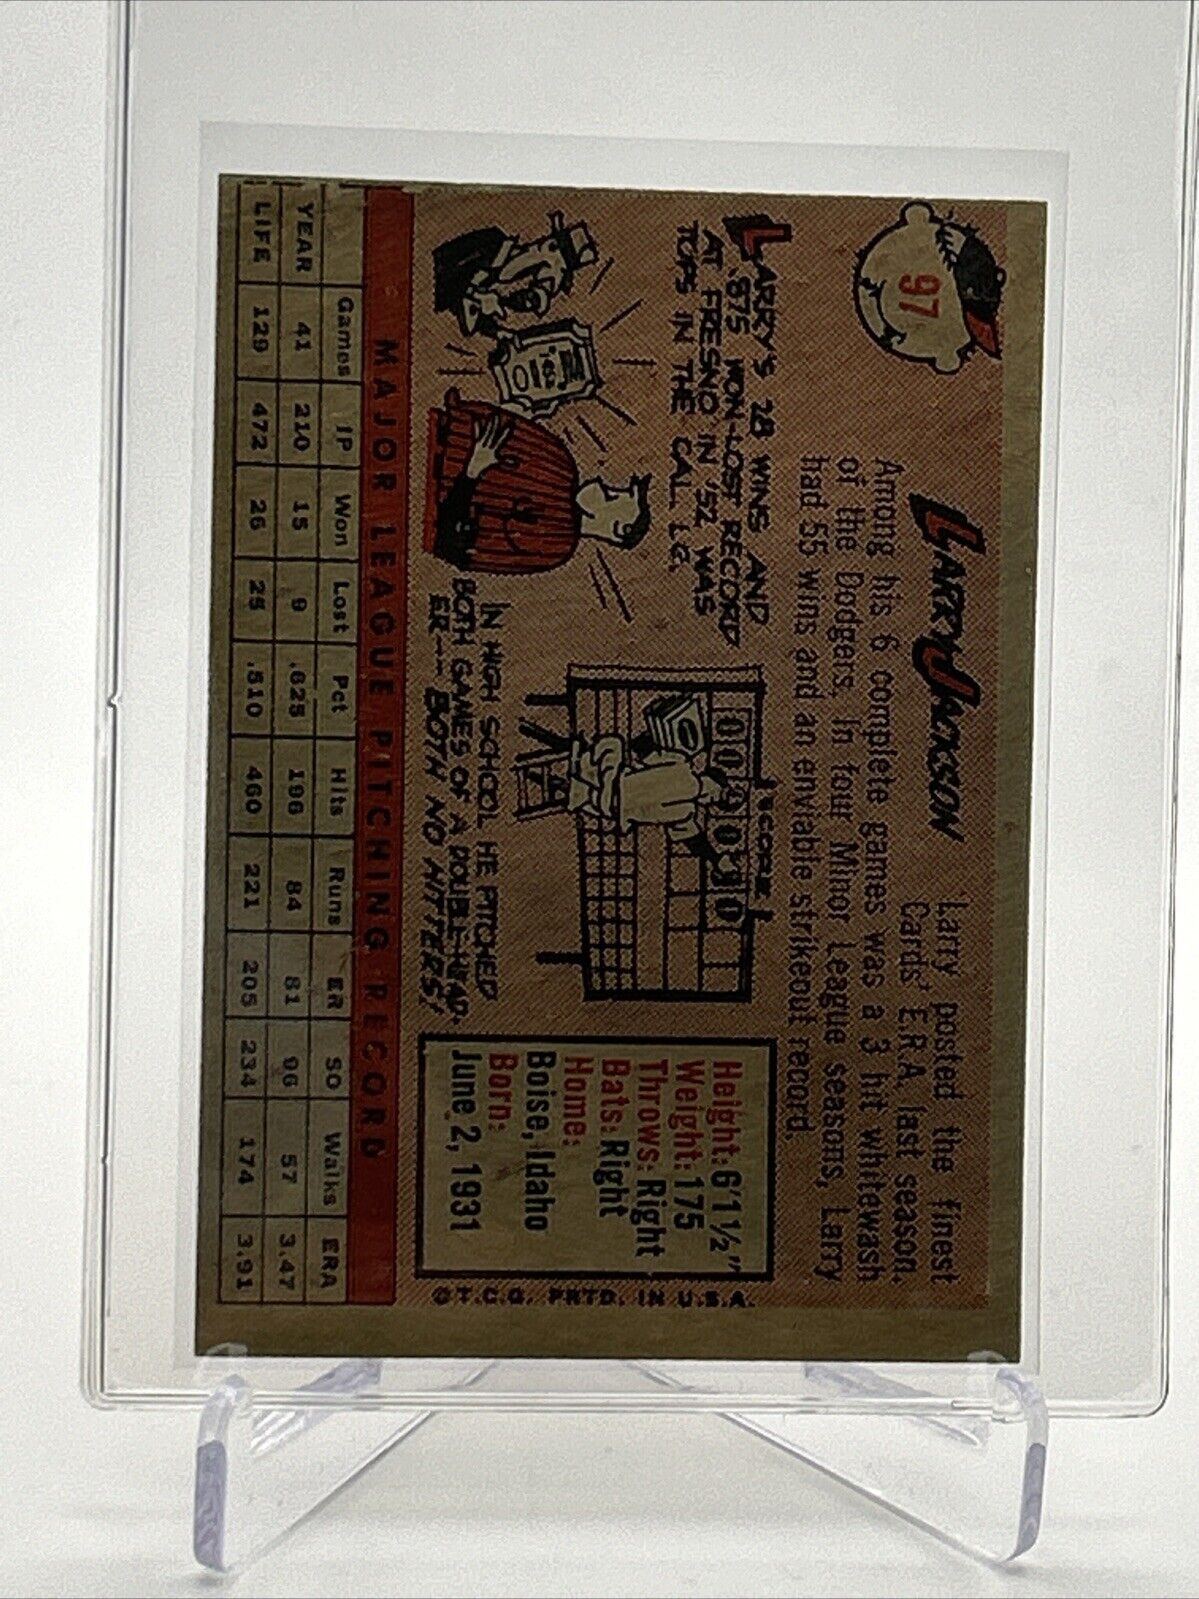 97
LARRY JACKSON
Larry posted the finest
Cards' E.R.A. last season.
Among his 6 complete games was a 3 hit whitewash
of the Dodgers. In four Minor League seasons, Larry
had 55 wins and an enviable strikeout record.
LARRY'S 28 WINS AND
.875 WON-LOST RECORD
AT FRESNO IN '52 WAS
TOPS IN THE CAL L.G.
SCORE
IN HIGH SCHOOL HE PITCHED
BOTH GAMES OF A DOUBLE-HEAD-
ER--- BOTH NO HITTERS!
Height: 6'1½"
Weight: 175
Throws: Right
Bats: Right
Home:
Boise, Idaho
Born:
June 2, 1931
©T.C.G. PRTD. IN U.S.A.
MAJOR LEAGUE PITCHING RECORD
Games IP Won Lost Pct Hits Runs ER SO Walks ERA
YEAR 41 210 15 9 .625 196 84 81 96 57 3.47
LIFE 129 472 26 25 .510 460 221 205 234 174 3.91